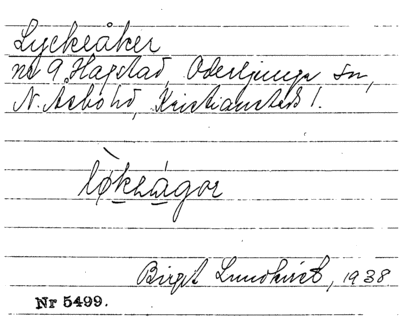 Lyckeåker
nr 9 Hagstad, Oderljunga sn,
N. Åsbo hd, Kristianstads l.
lø̀kəågor
Birgit Lundkvist, 1938
Nr 5499.